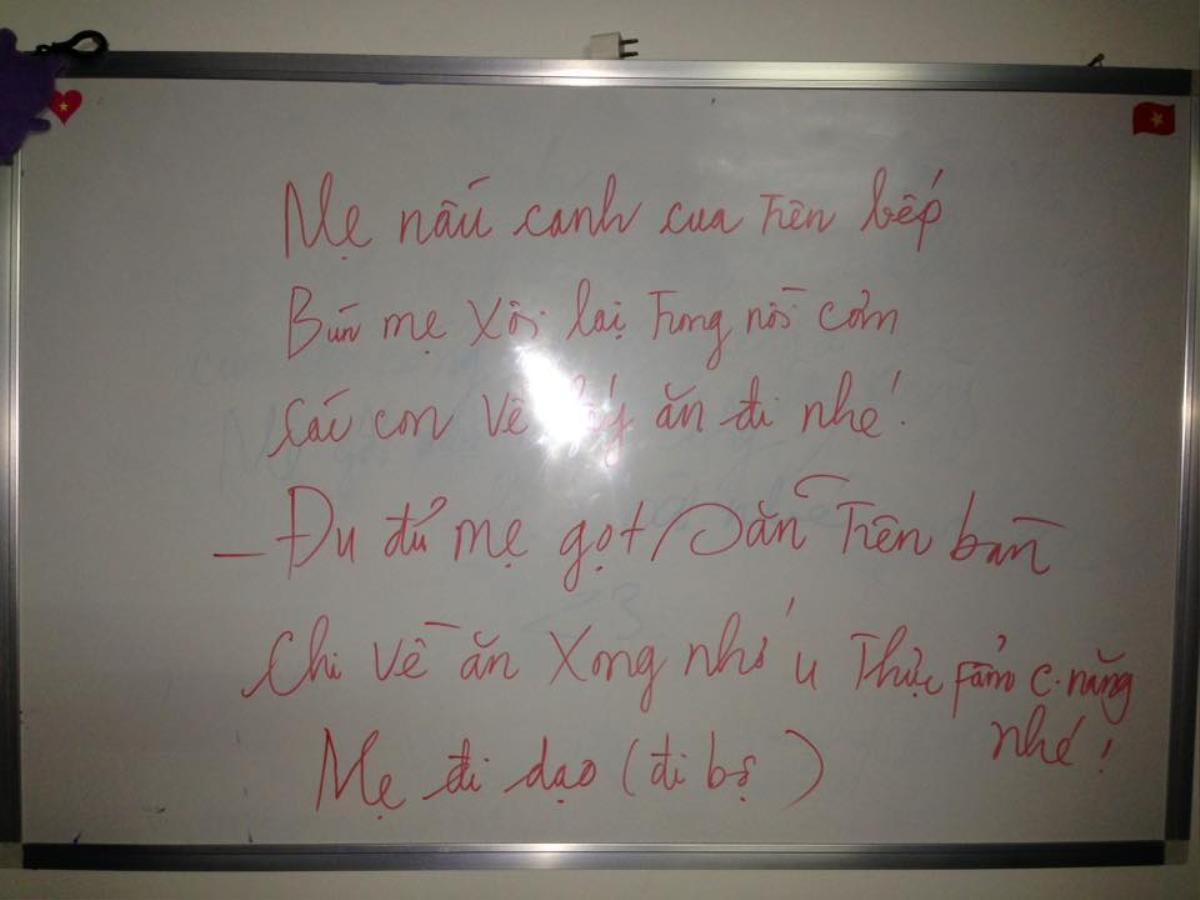 Mẹ nấu canh cua trên bếp
Bún mẹ xôi lại trong nồi cơm
Các con về lấy ăn đi nhé!
- Đu đủ mẹ gọt sẵn trên bàn
Chi về ăn xong nhớ u thực fẩm c.năng
nhé!
Mẹ đi dạo (đi bộ)